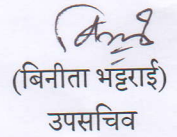 (बिनीता भट्टराई)
उपसचिव